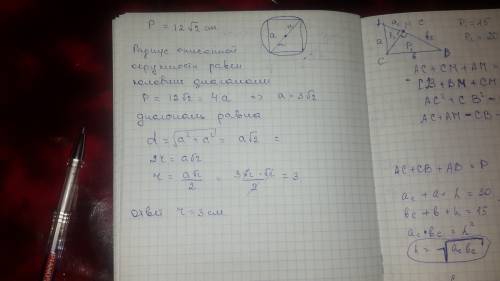 P = 12√2 см
Радиус описанной
окружности равен
половине диагонали
P = 12√2 = 4a => a = 3√2
диагональ равна
d = √a² + a² = a√2 =
2r = a√2
r = a√2 / 2 = 3√2 · √2 / 2 = 3
ответ r = 3 см
a
P₁ = 15
P₂ = 20
a
C
B
AC + CM + AM =
CB + BM + CM
AC² + CB² =
AC + AM - CB -
AC + CB + AB = P
a꜀ + a + h = 20
b꜀ + b + h = 15
a꜀ · b꜀ = h²
h = √a꜀b꜀